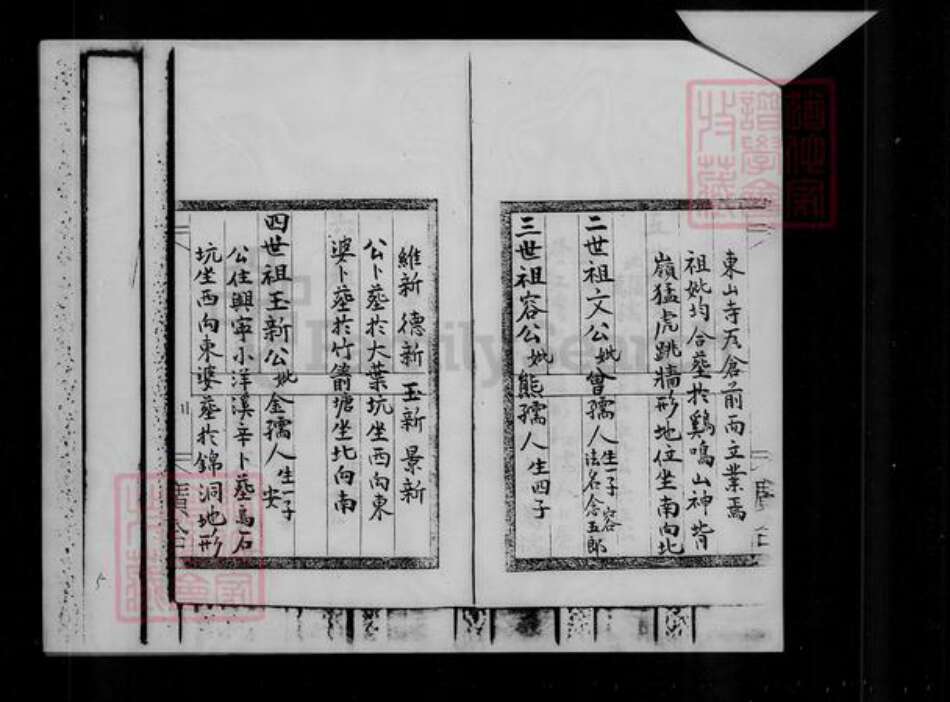 東山寺左倉前而立業焉
祖妣均合塟扵鷄鳴山神背
嶺猛虎跳牆形地位坐南向北
二世祖文公妣曾孺人生一子容
法名念五郎
三世祖容公妣熊孺人生四子
維新 德新 玉新 景新
公卜塟扵大葉坑坐西向東
婆卜塟扵竹箭塘坐北向南
四世祖玉新公妣金孺人生一子
安
公住興寧小洋溪辛卜塟烏石
坑坐西向東婆塟扵錦洞地形
FamilySearch
5